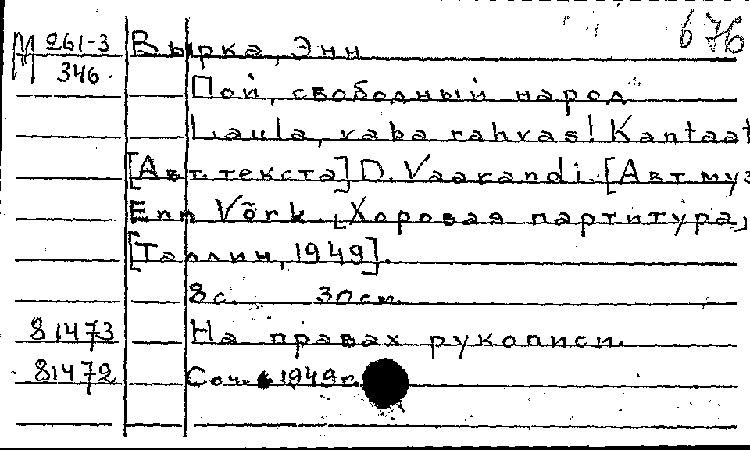 М 261-3 Вырка, Энн 676
346
Пой, свободный народ
Laula, vaba rahvas! Kantaat
[Авт. текста] D. Vaarandi. [Авт муз
Enn Võrk. [Хоровая партитура]
[Таллин, 1949].
8 с. 30 см.
81473 На правах рукописи.
81472 Соч. в 1949 г.